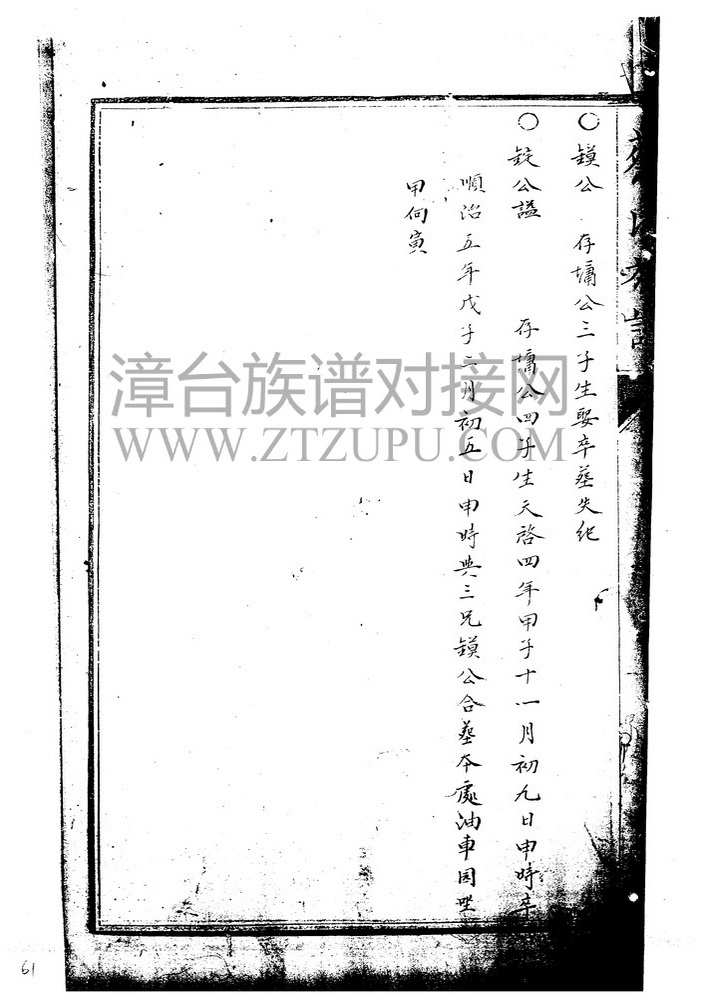 ○鏌公　存墉公三子生娶卒墓失紀
○錠公謚　存墉公四子生天啓四年甲子十一月初九日申時卒
順治五年戊子二月初五日申時與三兄鏌公合墓本處油車园坐
甲向寅
漳台族谱对接网
WWW.ZTZUPU.COM
61